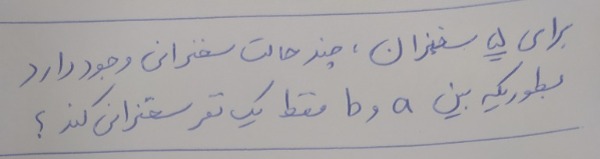 برای ۵ سخنران ، چند حالت سخنرانی وجود دارد
بطوریکه بین a و b فقط یک نفر سخنرانی کند ؟